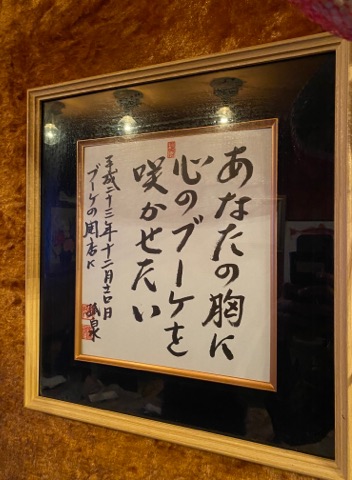 あなたの胸に
心のブーケを
咲かせたい
平成二十三年十二月吉日
ブーケの開店に